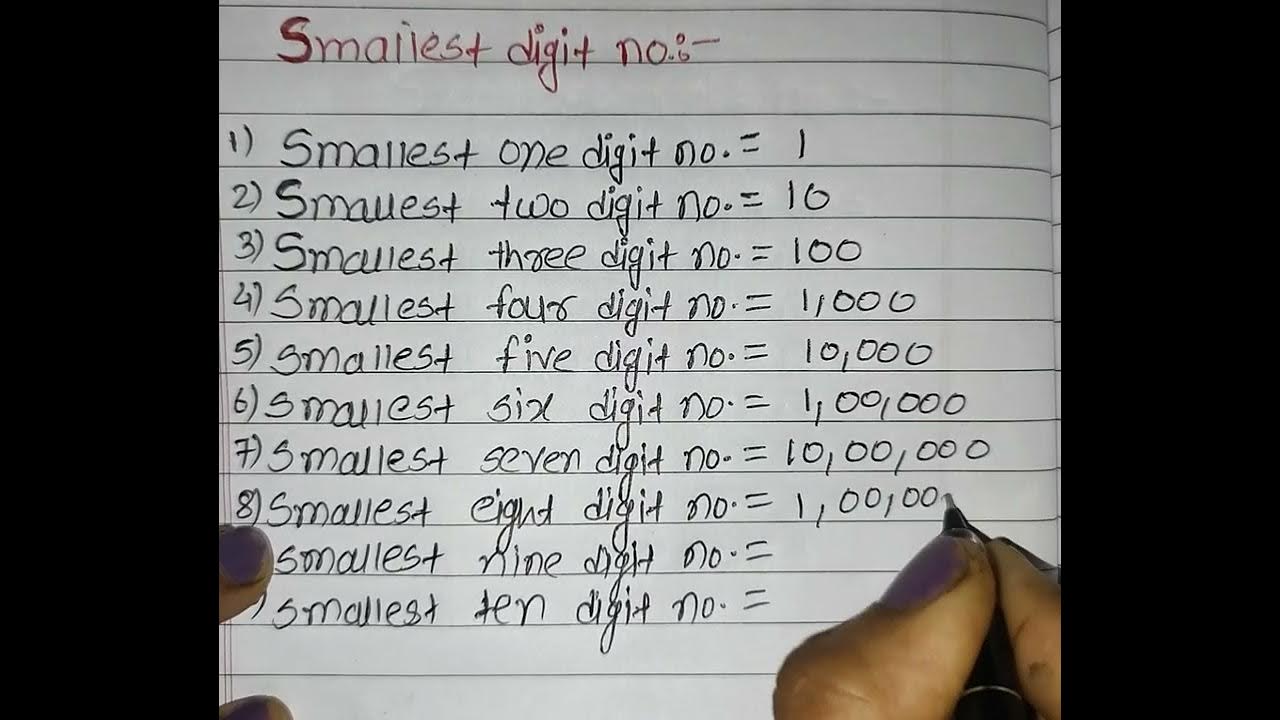 Smallest digit no.:-
1) Smallest one digit no. = 1
2) Smallest two digit no. = 10
3) Smallest three digit no. = 100
4) Smallest four digit no. = 1,000
5) Smallest five digit no. = 10,000
6) Smallest six digit no. = 1,00,000
7) Smallest seven digit no. = 10,00,000
8) Smallest eight digit no. = 1,00,00
Smallest nine digit no. =
) Smallest ten digit no. =